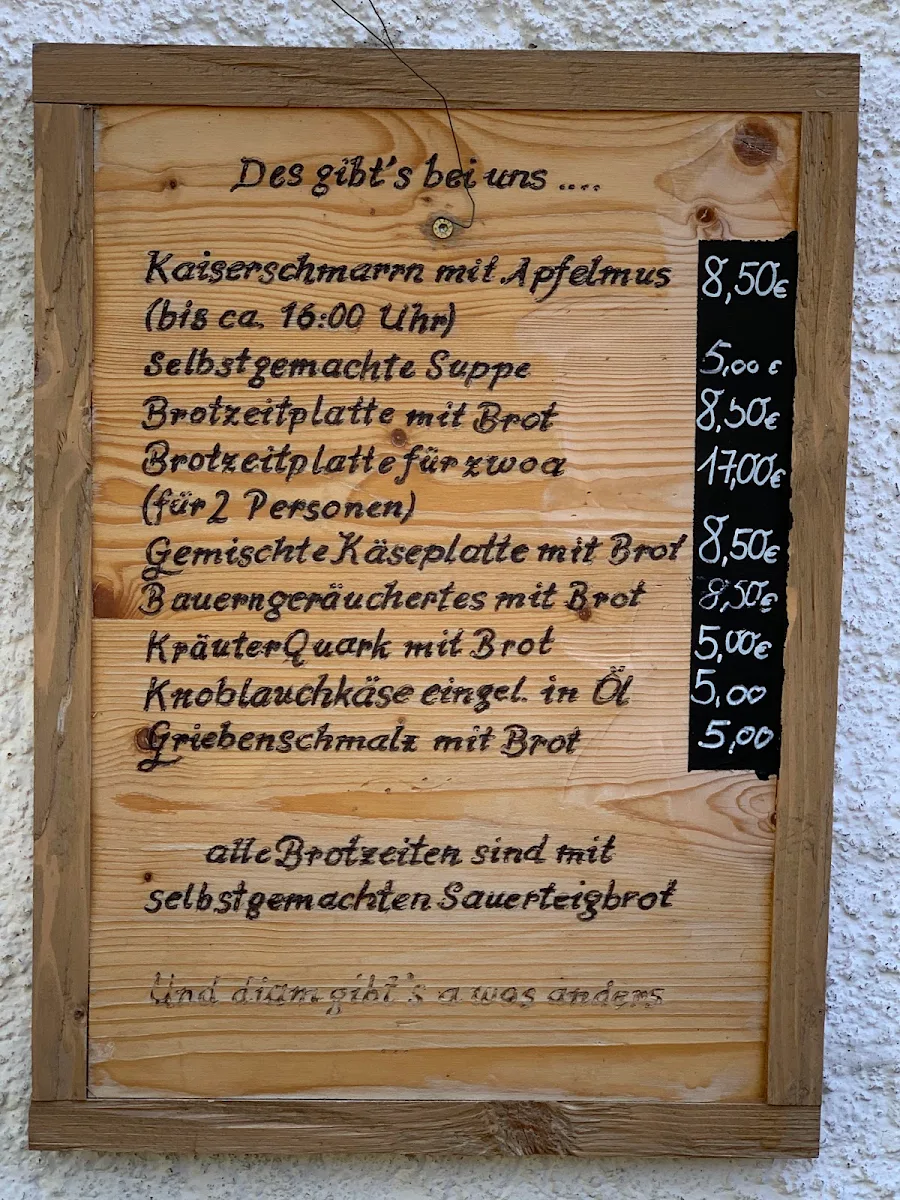 Des gibt's bei uns ....
Kaiserschmarrn mit Apfelmus 8,50€
(bis ca. 16:00 Uhr)
Selbstgemachte Suppe 5,00 €
Brotzeitplatte mit Brot 8,50€
Brotzeitplatte für zwoa 17,00€
(für 2 Personen)
Gemischte Käseplatte mit Brot 8,50€
Bauerngeräuchertes mit Brot 8,50€
KräuterQuark mit Brot 5,00€
Knoblauchkäse eingel. in Öl 5,00
Griebenschmalz mit Brot 5,00
alle Brotzeiten sind mit
selbstgemachten Sauerteigbrot
Und diam gibt's a was anders